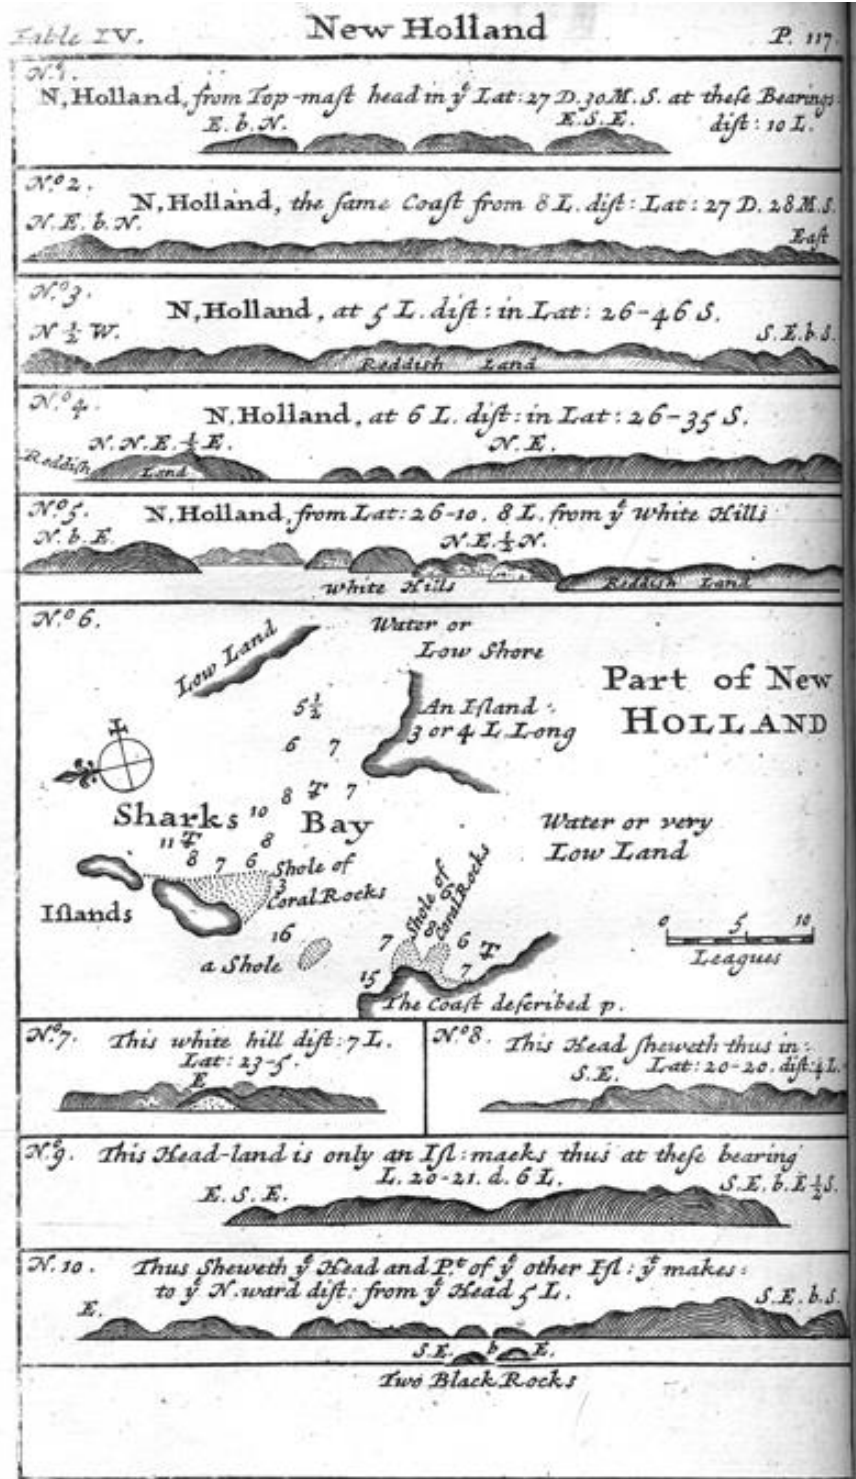 Table IV. New Holland P. 117.
N.º 1.
N, Holland, from Top-maſt head in yͤ Lat: 27 D. 30 M. S. at theſe Bearings
E. b. N. E. S. E. diſt: 10 L.
N.º 2.
N, Holland, the ſame Coaſt from 8 L. diſt: Lat: 27 D. 28 M. S.
N. E. b. N. Eaſt
N.º 3.
N, Holland, at 5 L. diſt: in Lat: 26-46 S.
N ½ W. S. E. b. S.
Reddish Land
N.º 4.
N. Holland, at 6 L. diſt: in Lat: 26-35 S.
N. N. E. ½ E. N. E.
Reddish Land
N.º 5. N, Holland, from Lat: 26-10. 8 L. from yͤ White Hills
N. b. E. N. E. ½ N.
White Hills Reddish Land
N.º 6.
Low Land
Water or
Low Shore
Part of New
HOLLAND
5 ½
An Iſland
3 or 4 L Long
6 7
8 7
Sharks 10 Bay
Water or very
Low Land
11 8
8 7 6
Shole of
3
Coral Rocks
Iſlands
Shole of
Coral Rocks
8 6
16
a Shole
7 6
0 5 10
Leagues
15 7
The Coaſt deſcribed p.
N.º 7. This white hill diſt: 7 L.
Lat: 23-5.
E
N.º 8. This Head ſheweth thus in
S. E. Lat: 20-20. diſt: 4 L.
N.º 9. This Head-land is only an Iſl: maeks thus at theſe bearing
L. 20-21. d. 6 L.
E. S. E. S. E. b. E ½ S.
N. 10. Thus Sheweth yͤ Head and P.ᵗ of yͤ other Iſl: yᵗ makes:
to yͤ N. ward diſt: from yͤ Head 5 L.
E. S. E. b. S.
S. E. b E.
Two Black Rocks